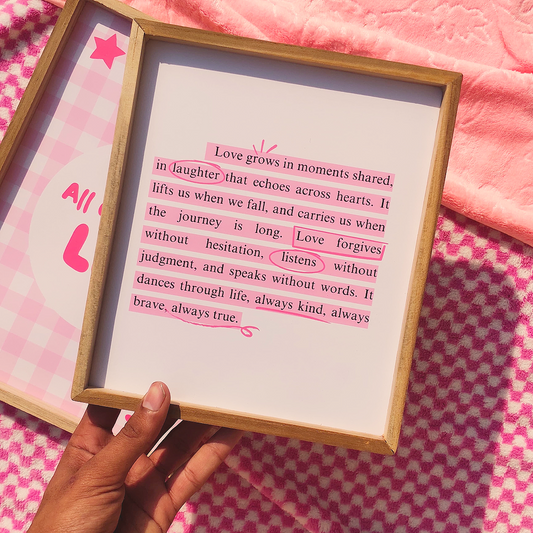 All
L
Love grows in moments shared,
in laughter that echoes across hearts. It
lifts us when we fall, and carries us when
the journey is long. Love forgives
without hesitation, listens without
judgment, and speaks without words. It
dances through life, always kind, always
brave, always true.